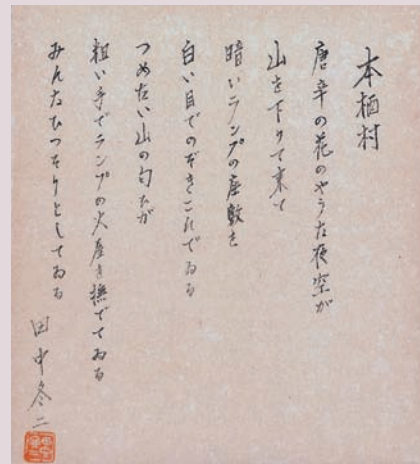 本栖村
唐辛の花のやうな夜空が
山を下りて来て
暗いランプの座敷を
白い目でのぞきこんでゐる
つめたい山の匂ひが
粗い手でランプの火屋を撫でてゐる
みんなひつそりとしてゐる
田中冬二